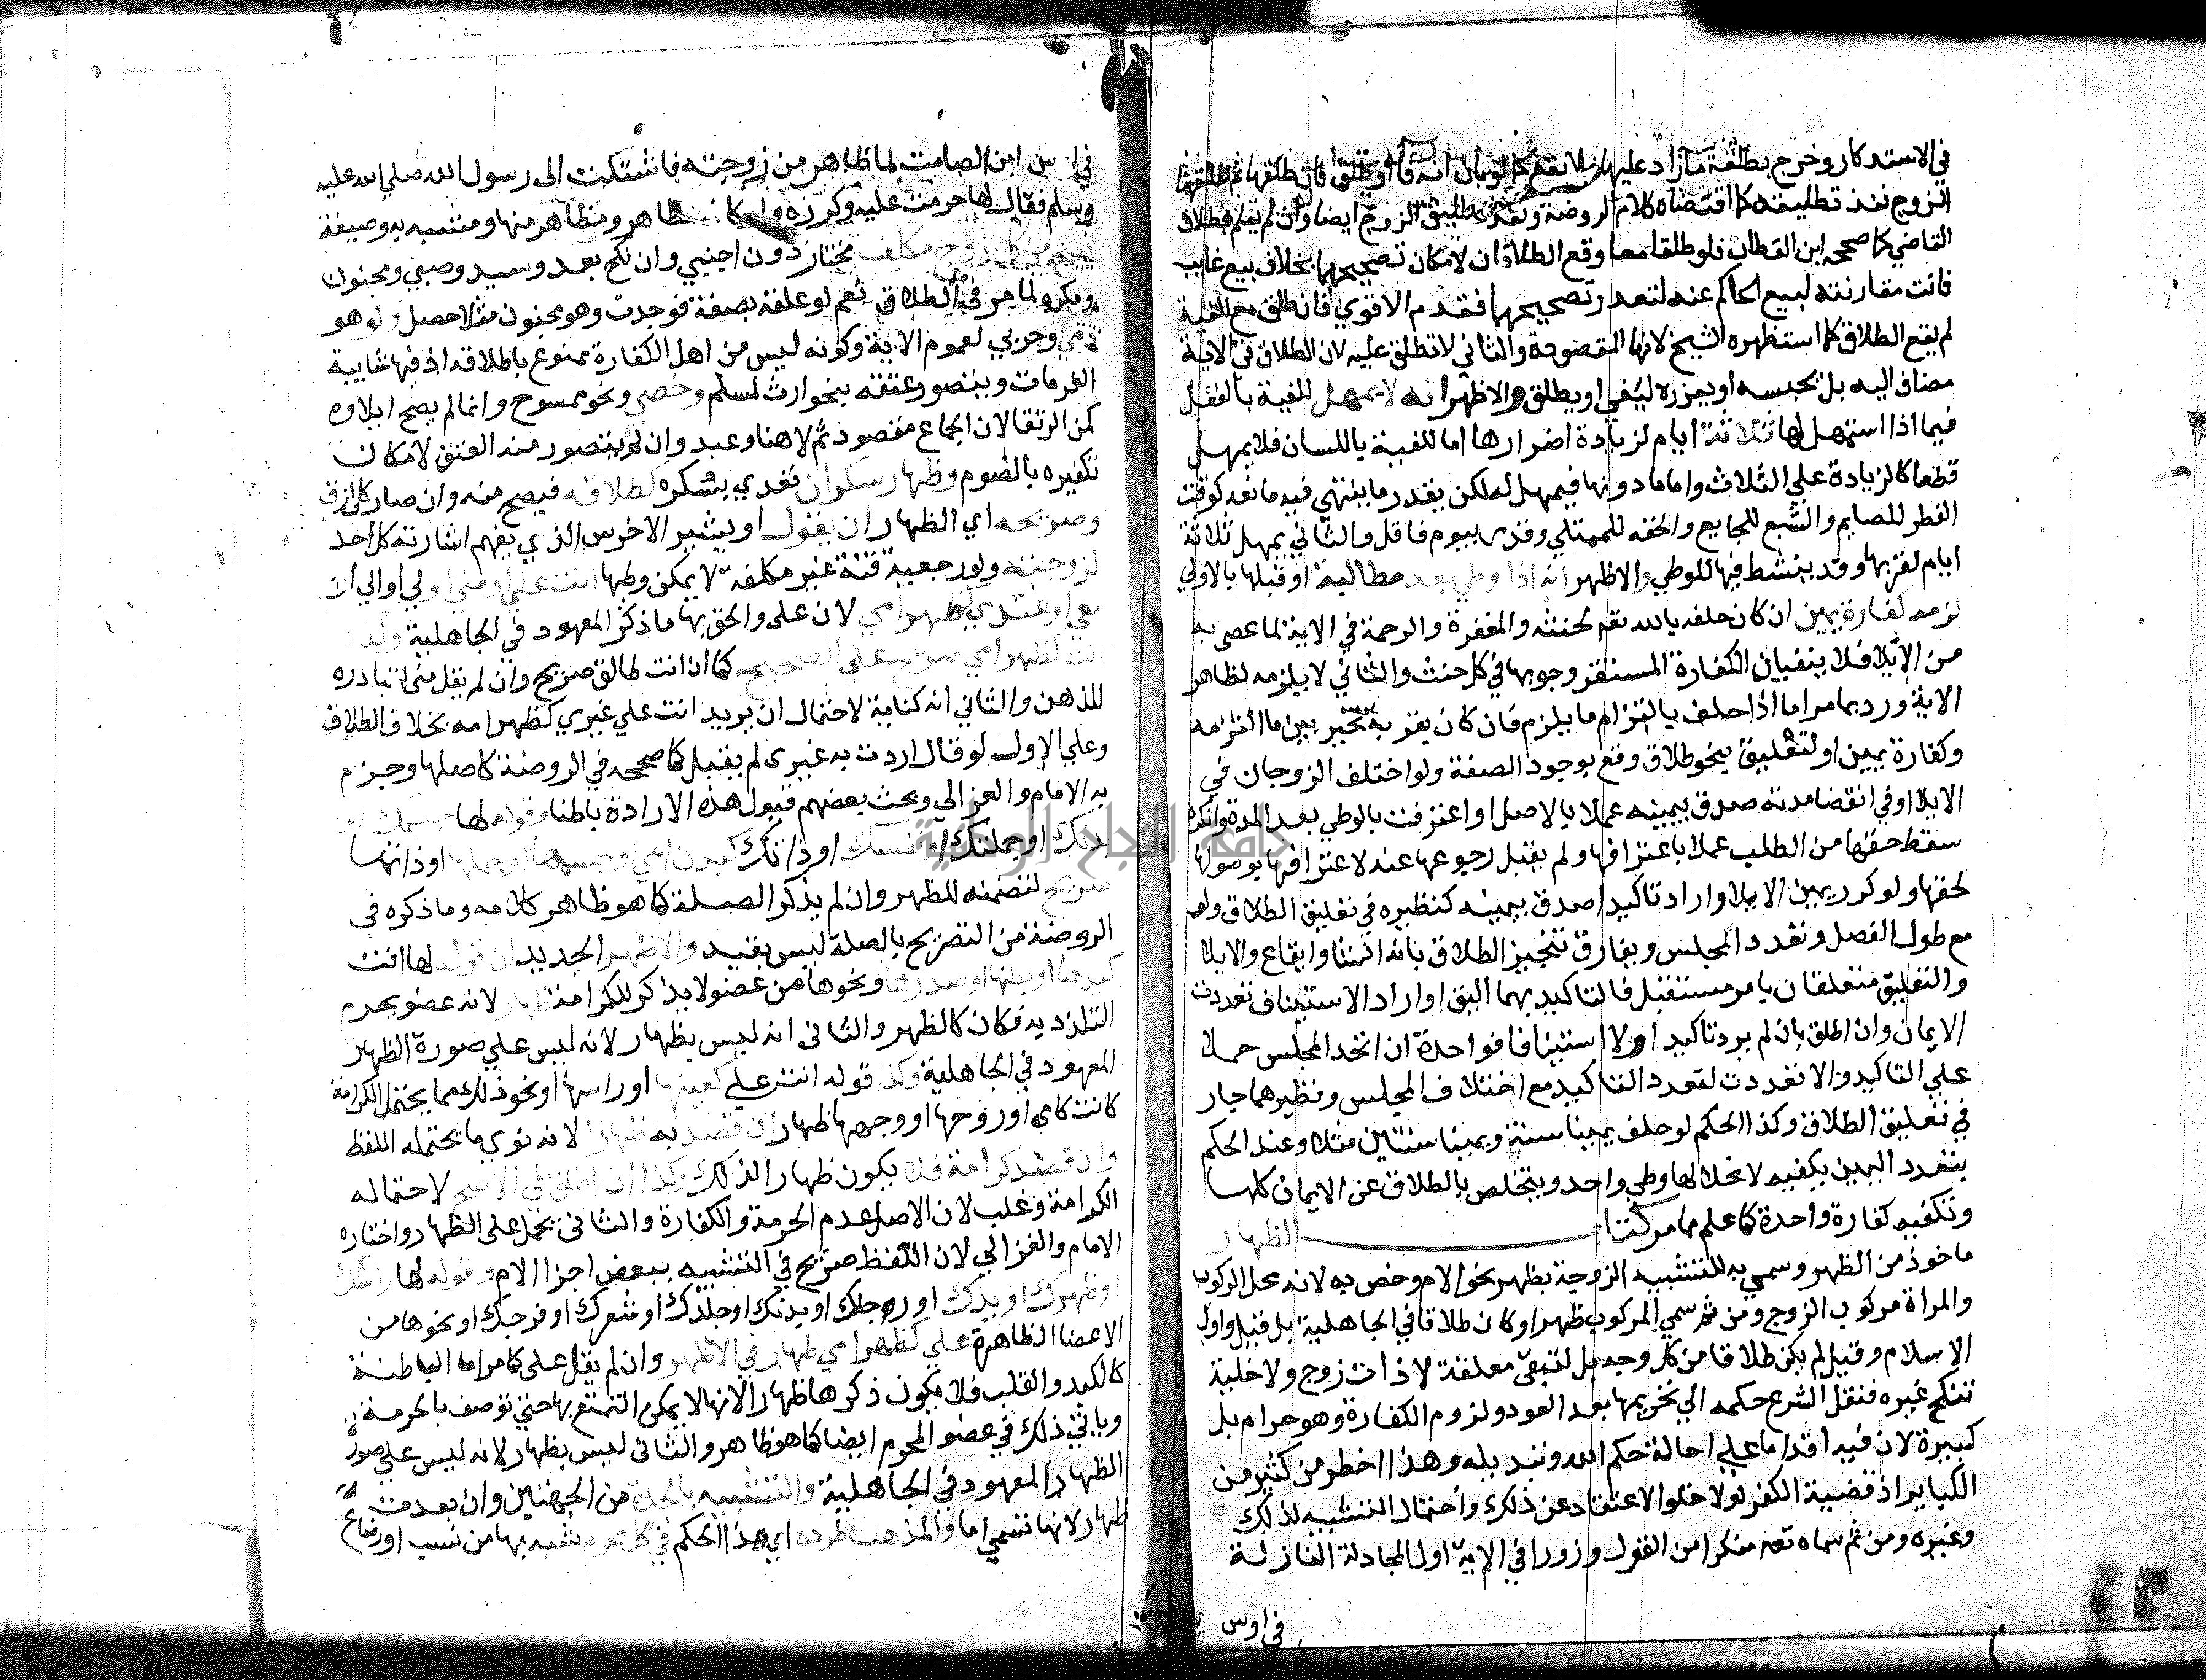 في الاستدكار وخرج بطلقة مازاد عليها فلا يقع كما لو بان انه فا او طلق فان طلقها ثم طلقها
الزوج نفذ تطليقه كما اقتضاه كلام الروضة ونفذ تطليق الزوج ايضا وان لم يعلم بطلاق
القاضي كما صححه ابن القطان فلو طلقا معا وقع الطلاقان لامكان تصحيحهما بخلاف بيع غايب
فانت مقارنته لبيع الحاكم عنه لتعذر تصحيحهما فقدم الاقوي فان طلق مع الفية
لم يقع الطلاق كما استظهره الشيخ لانها المقصودة والثاني لا تطلق عليه لان الطلاق في الاية
مضاف اليه بل يحبسه او يعزره ليفي او يطلق والاظهر انه لا يمهل للفية بالفعل
فيما اذا استمهل لها ثلاثة ايام لزيادة اضرارها اما للفية باللسان فلا يمهل
قطعا كالزيادة علي الثلاث واما ما دونها فيمهل له لكن بقدر ما ينتهي فيه مانعه كوقت
الفطر للصايم والشبع للجايع والخفه للممتلي وقدر بيوم فاقل والثاني يمهل ثلاثة
ايام لقربها وقد ينشط فيها للوطي والاظهر انه اذا وطي بعد مطالبة او قبلها بالاولي
لزمه كفارة يمين ان كان حلفه بالله تعالي لحنثه والمغفرة والرحمة في الاية لما عصي به
من الايلا فلا ينفيان الكفارة المستقر وجوبها في كل حنث والثاني لا يلزمه لظاهر
الاية ورد بما مر اما اذا حلف بالتزام ما يلزم فان كان يقربه تخير بين ما التزمه
وكفارة يمين او لتعليق بنحو طلاق وقع بوجود الصفة ولو اختلف الزوجان في
الايلا او في انقضا مدته صدق بيمينه عملا بالاصل او اعترفت بالوطي بعد المدة وانكره
سقط حقها من الطلب عملا باعترافها ولم يقبل رجوعها عنه لاعترافها بوصول
لحقها ولو كرر يمين الايلا واراد تاكيدا صدق بيمينه كنظيره في تعليق الطلاق ولو
مع طول الفصل وتعدد المجلس ويفارق تنجيز الطلاق بانه انشا وايقاع والايلا
والتعليق متعلقان بامر مستقبل فالتاكيد بهما اليق او اراد الاستيناف تعددت
الايمان وان اطلق بان لم يرد تاكيدا ولا استينافا فواحدة ان اتحد المجلس حملا
علي التاكيد والا تعددت لتعدد التاكيد مع اختلاف المجلس ونظيرهما جار
في تعليق الطلاق وكذا الحكم لو حلف يمينا سنة ويمينا سنتين مثلا وعند الحكم
بتعدد اليمين يكفيه لانحلالها وطي واحد ويتخلص بالطلاق عن الايمان كلها
وتكفيه كفارة واحدة كما علم مما مر كتاب الظهار
ماخوذ من الظهر وسمي به لتشبيه الزوجية بظهر نحو الام وخص به لانه محل الركوب
والمراة مركوب الزوج ومن ثم سمي المركوب ظهرا وكان طلاقا في الجاهلية بل قيل واول
الاسلام وقيل لم يكن طلاقا من كل وجه بل لتبقي معلقة لا ذات زوج ولا خلية
تنكح غيره فنقل الشرع حكمه الي تحريمها بعد العود ولزوم الكفارة وهو حرام بل
كبيرة لان فيه اقداما علي احالة حكم الله وتبديله وهذا اخطر من كثير من
الكباير اذ قضية الكفر لولا خلو الاعتقاد عن ذلك واحتمال التشبيه لذلك
وغيره ومن ثم سماه تعالي منكرا من القول وزورا في الاية اول المجادلة النازلة
في اوس
في اوس ابن الصامت لما ظاهر من زوجته فاشتكت الي رسول الله صلي الله عليه
وسلم فقال لها حرمت عليه وكرره مظاهر ومظاهر منها ومشبه به وصيغة
يصح من زوج مكلف مختار دون اجنبي وان نكح بعد وسيد وصبي ومجنون
ومكره لما مر في الطلاق نعم لو علقه بصفة فوجدت وهو مجنون مثلا حصل ولو هو
ذمي وحربي لعموم الاية وكونه ليس من اهل الكفارة ممنوع باطلاقه اذ فيها شايبة
الغرمات ويتصور عتقه بنحو ارث لمسلم وخصي ونحو ممسوح وانما لم يصح ايلاوه
كمن الرتقا لان الجماع مقصود ثم لا هنا وعبد وان لم يتصور منه العتق لامكان
تكفيره بالصوم وظهار سكران تعدي بسكره كطلاقه فيصح منه وان صار كالزق
وصريحه اي الظهار ان يقول او يشير الاخرس الذي يفهم اشارته كل احد
لزوجته ولو رجعية قنة غير مكلفة لا يمكن وطيها انت علي او مني او لي او الي او
معي او عندي كظهر امي لان علي والحق بها ما ذكر المعهود في الجاهلية وكذا
انت كظهر امي صريح علي الصحيح كما ان انت طالق صريح وان لم يقل مني لتبادره
للذهن والثاني انه كناية لاحتمال ان يريد انت علي غيري كظهر امه بخلاف الطلاق
وعلي الاول لو قال اردت به غيري لم يقبل كما صححه في الروضة كاصلها وجزم
به الامام والغزالي وبحث بعضهم قبول هذه الارادة باطنا وقوله لها جسمك او
بدنك او جملتك او نفسك او ذاتك كبدن امي او جسمها او جملتها او ذاتها
صريح لتضمنه للظهر وان لم يذكر الصلة كما هو ظاهر كلامه وما ذكره في
الروضة من التصريح بالصلة ليس بقيد والاظهر الجديد ان قوله لها انت
كيدها او بطنها او صدرها ونحوها من عضو لا يذكر للكرامة ظهار لانه عضو يحرم
التلذذ به فكان كالظهر والثاني انه ليس بظهار لانه ليس علي صورة الظهار
المعهود في الجاهلية وكذا قوله انت علي كعينها او راسها او نحو ذلك مما يحتمل الكرامة
كانت كامي او روحها او وجهها ظهار ان قصد به ظهارا لانه نوي ما يحتمله اللفظ
وان قصد كرامة فلا يكون ظهارا لذلك وكذا ان اطلق في الاصح لاحتماله
الكرامة وغلب لان الاصل عدم الحرمة والكفارة والثاني يحمل علي الظهار واختاره
الامام والغزالي لان اللفظ صريح في التشبيه ببعض اجزا الام وقوله لها راسك
او ظهرك او يدك او رجلك او بدنك او جلدك او شعرك او فرجك او نحوها من
الاعضا الظاهرة علي كظهر امي ظهار في الاظهر وان لم يقل علي كما مر اما الباطنة
كالكبد والقلب فلا يكون ذكرها ظهارا لانها لا يمكن التمتع بها حتي توصف بالحرمة
وياتي ذلك في عضو المحرم ايضا كما هو ظاهر والثاني ليس بظهار لانه ليس علي صورة
الظهار المعهود في الجاهلية والتشبيه بالجدة من الجهتين وان بعدت
ظهار لانها تسمي اما والمذهب طرده اي هذا الحكم في كل محرم شبه بها من نسب او رضاع
جامعة النجاح الوطنية